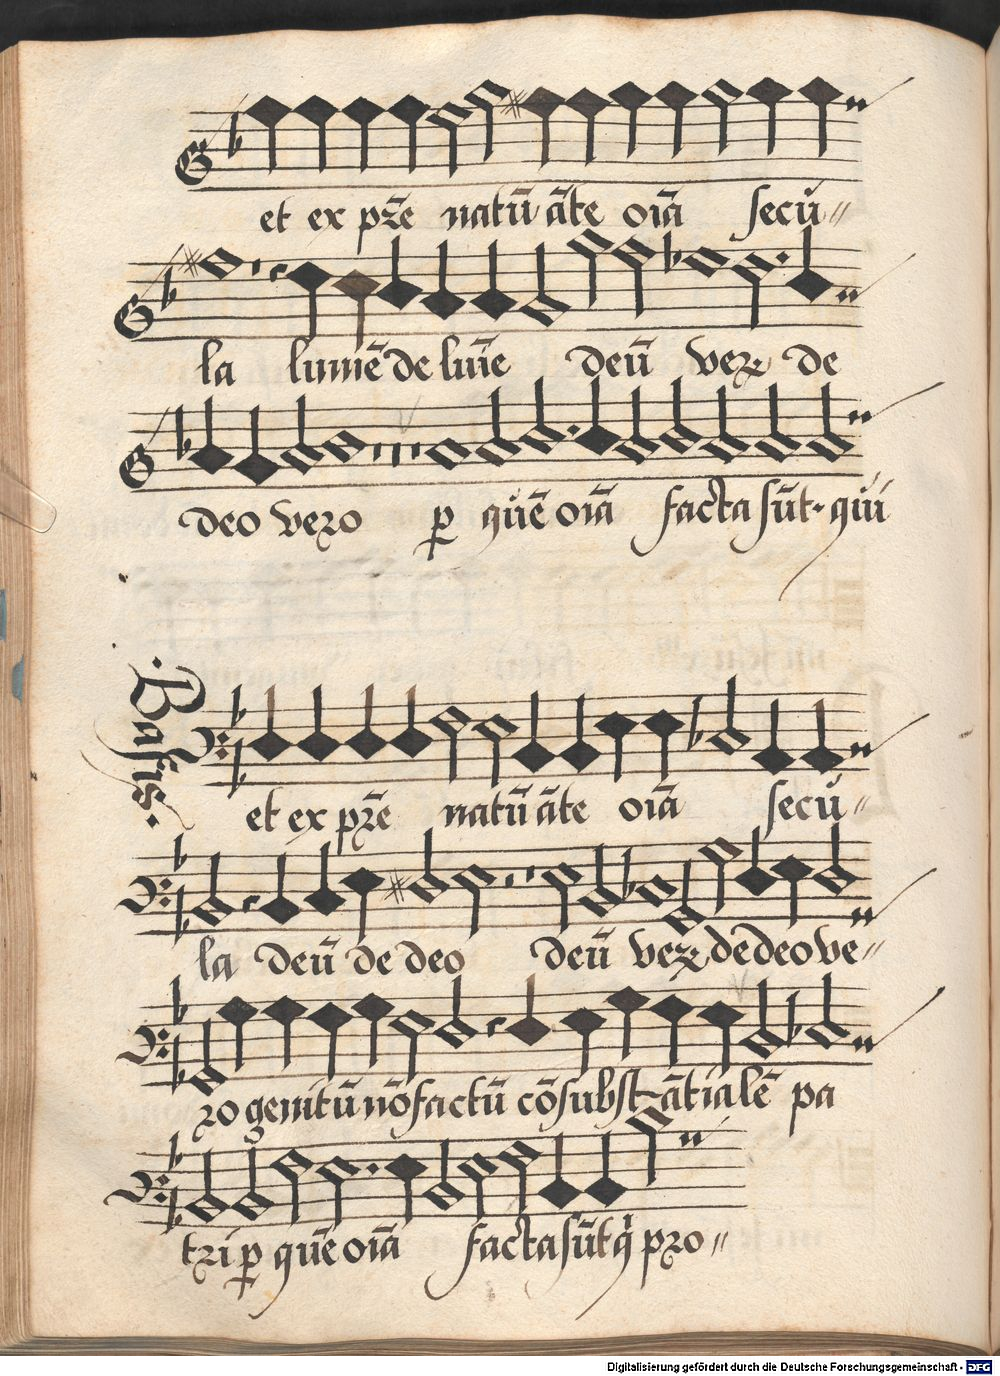 et ex pr̄e natū āte oīa secu〃
la lumē de luīe deū veꝝ de
deo vero ꝑ quē oīa facta sūt · qui
Bassis.
et ex pr̄e natū āte oīa secu〃
la deū de deo deū veꝝ de deo ve〃
ro genitū nō factū cōsubstātialē pa
tri ꝑ quē oīa facta sūt q̇ pro〃
Digitalisierung gefördert durch die Deutsche Forschungsgemeinschaft - DFG